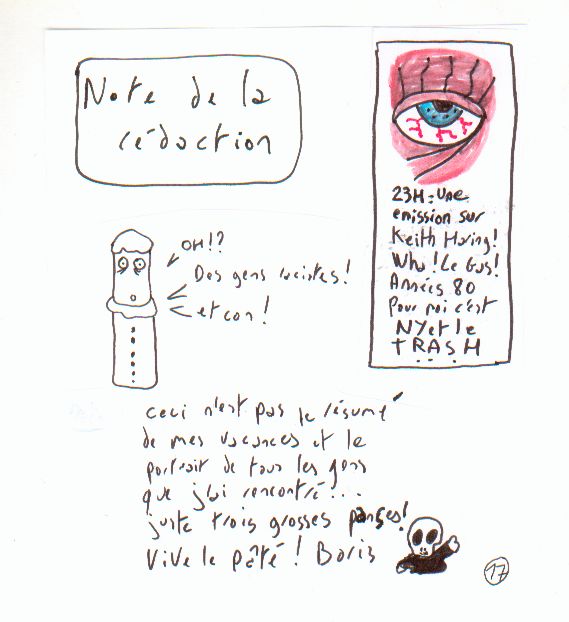 Note de la
rédaction
23H : Une
emission sur
Keith Haring !
Wha ! Le Gus !
Années 80
Pour moi c'est
NY et le
tRASH
OH !?
Des gens racistes !
et con !
ceci n'est pas le résumé
de mes vacances et le
portrait de tous les gens
que j'ai rencontré...
juste trois grosses panses !
Vive le pâté ! Boris
17